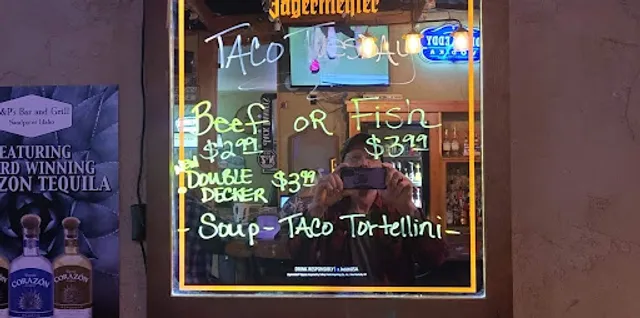 Jägermeister
TACO TUESDAY
Beef OR Fish
$2.99 $3.99
NEW
DOUBLE DECKER $3.99
- Soup - TACO Tortellini -
DRINK RESPONSIBLY
&P's Bar and Grill
Nampa, Idaho
EATURING
RD WINNING
ZON TEQUILA
CORAZÓN
CORAZÓN